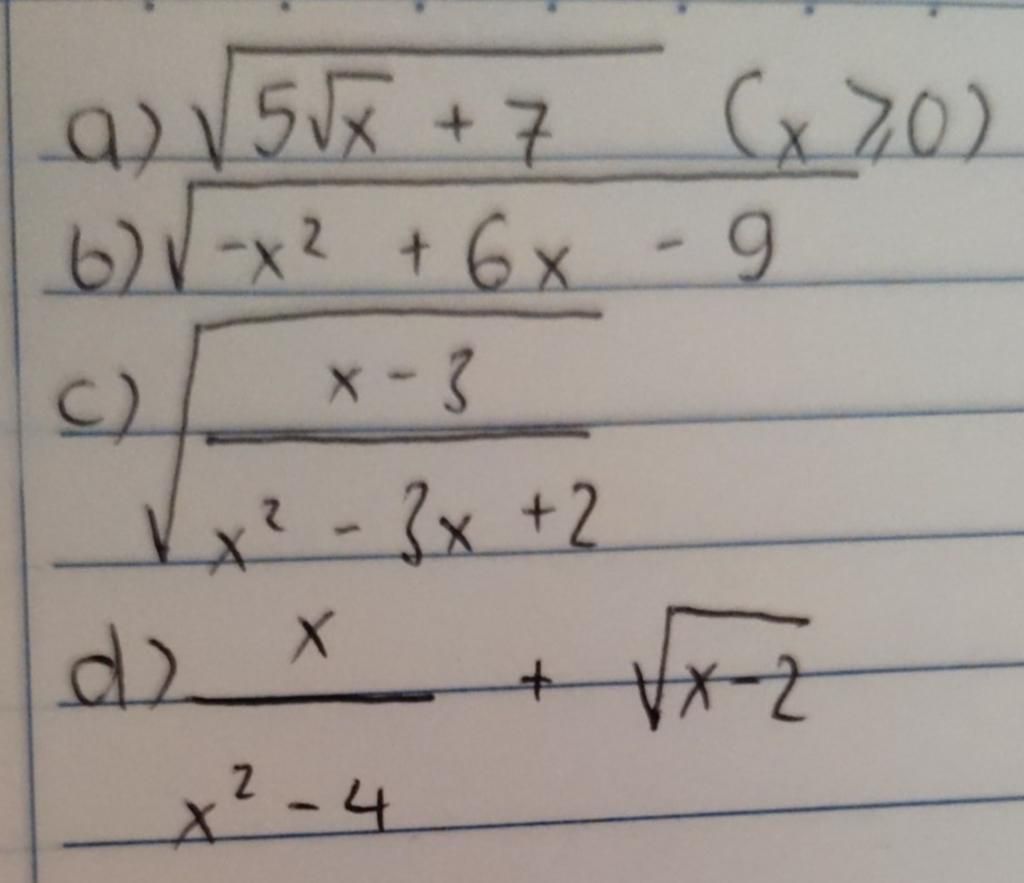 a) √(5√x + 7) (x ⩾ 0)
b) √(-x² + 6x - 9)
c) √((x - 3)/(x² - 3x + 2))
d) x/(x² - 4) + √(x-2)